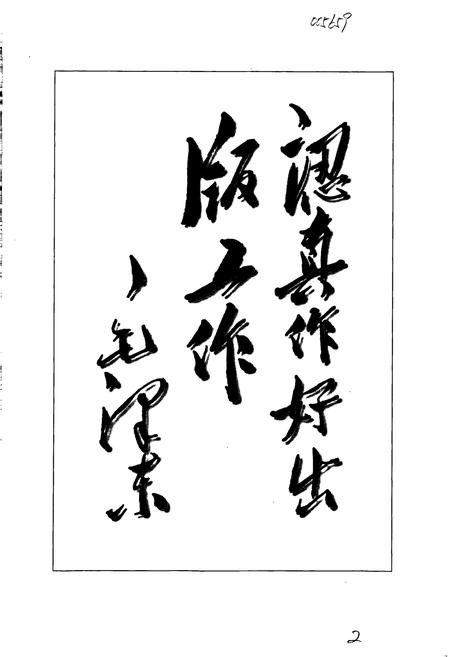 005659
認真作好出
版工作
毛澤东
2